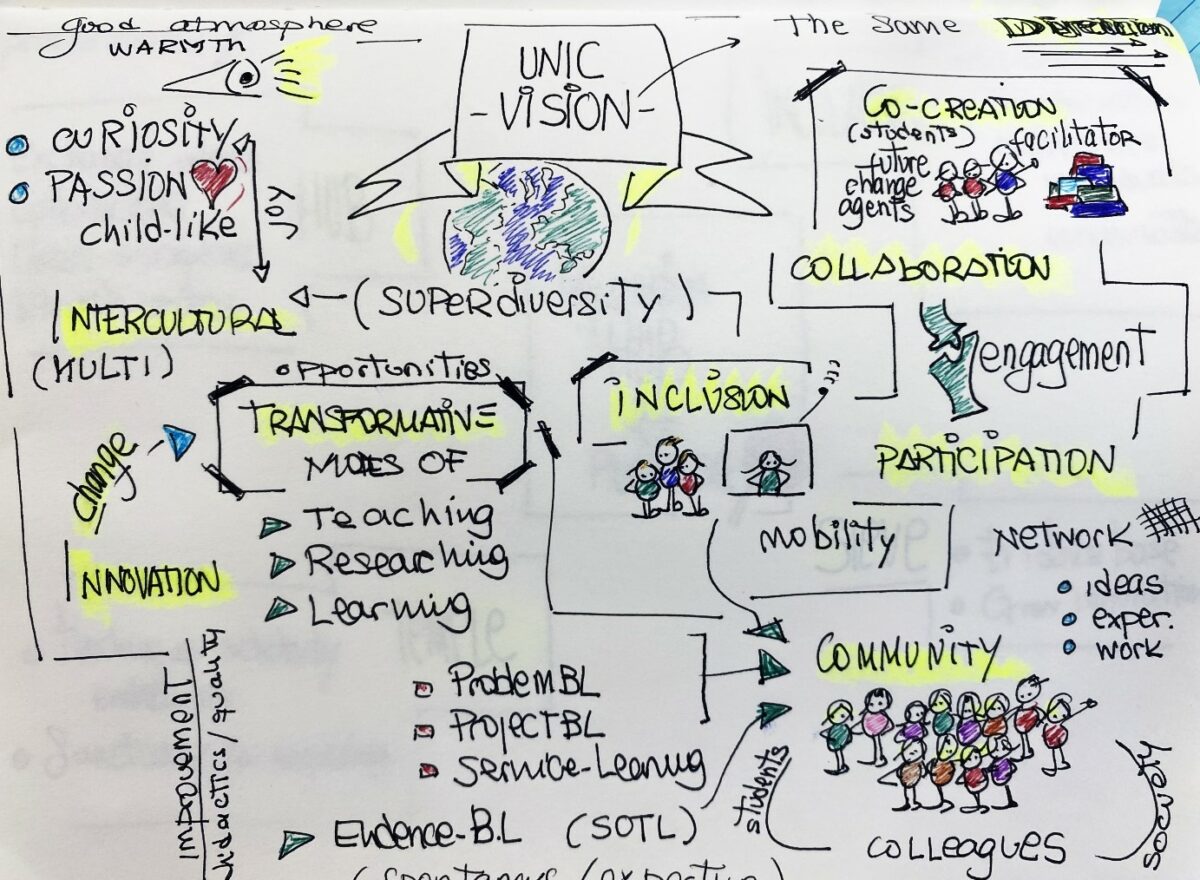 good atmosphere
WARMTH
CURIOSITY
PASSION
child-like
JOY
UNIC
- VISION -
The same
CO-CREATION
(students) facilitator
future
change
agents
COLLABORATION
engagement
PARTICIPATION
(SUPERdiVERSITY)
INTERCULTURAL
(MULTI)
opportunities
TRANSFORMATIVE
MODES OF
Teaching
Researching
Learning
change
INNOVATION
IMPROVEMENT
didactics / quality
INCLUSION
MOBILITY
NETWORK
ideas
exper.
work
COMMUNITY
students
colleagues
society
ProblemBL
ProjectBL
Service-Learnig
Evidence-B.L (SOTL)
(spontaneus /